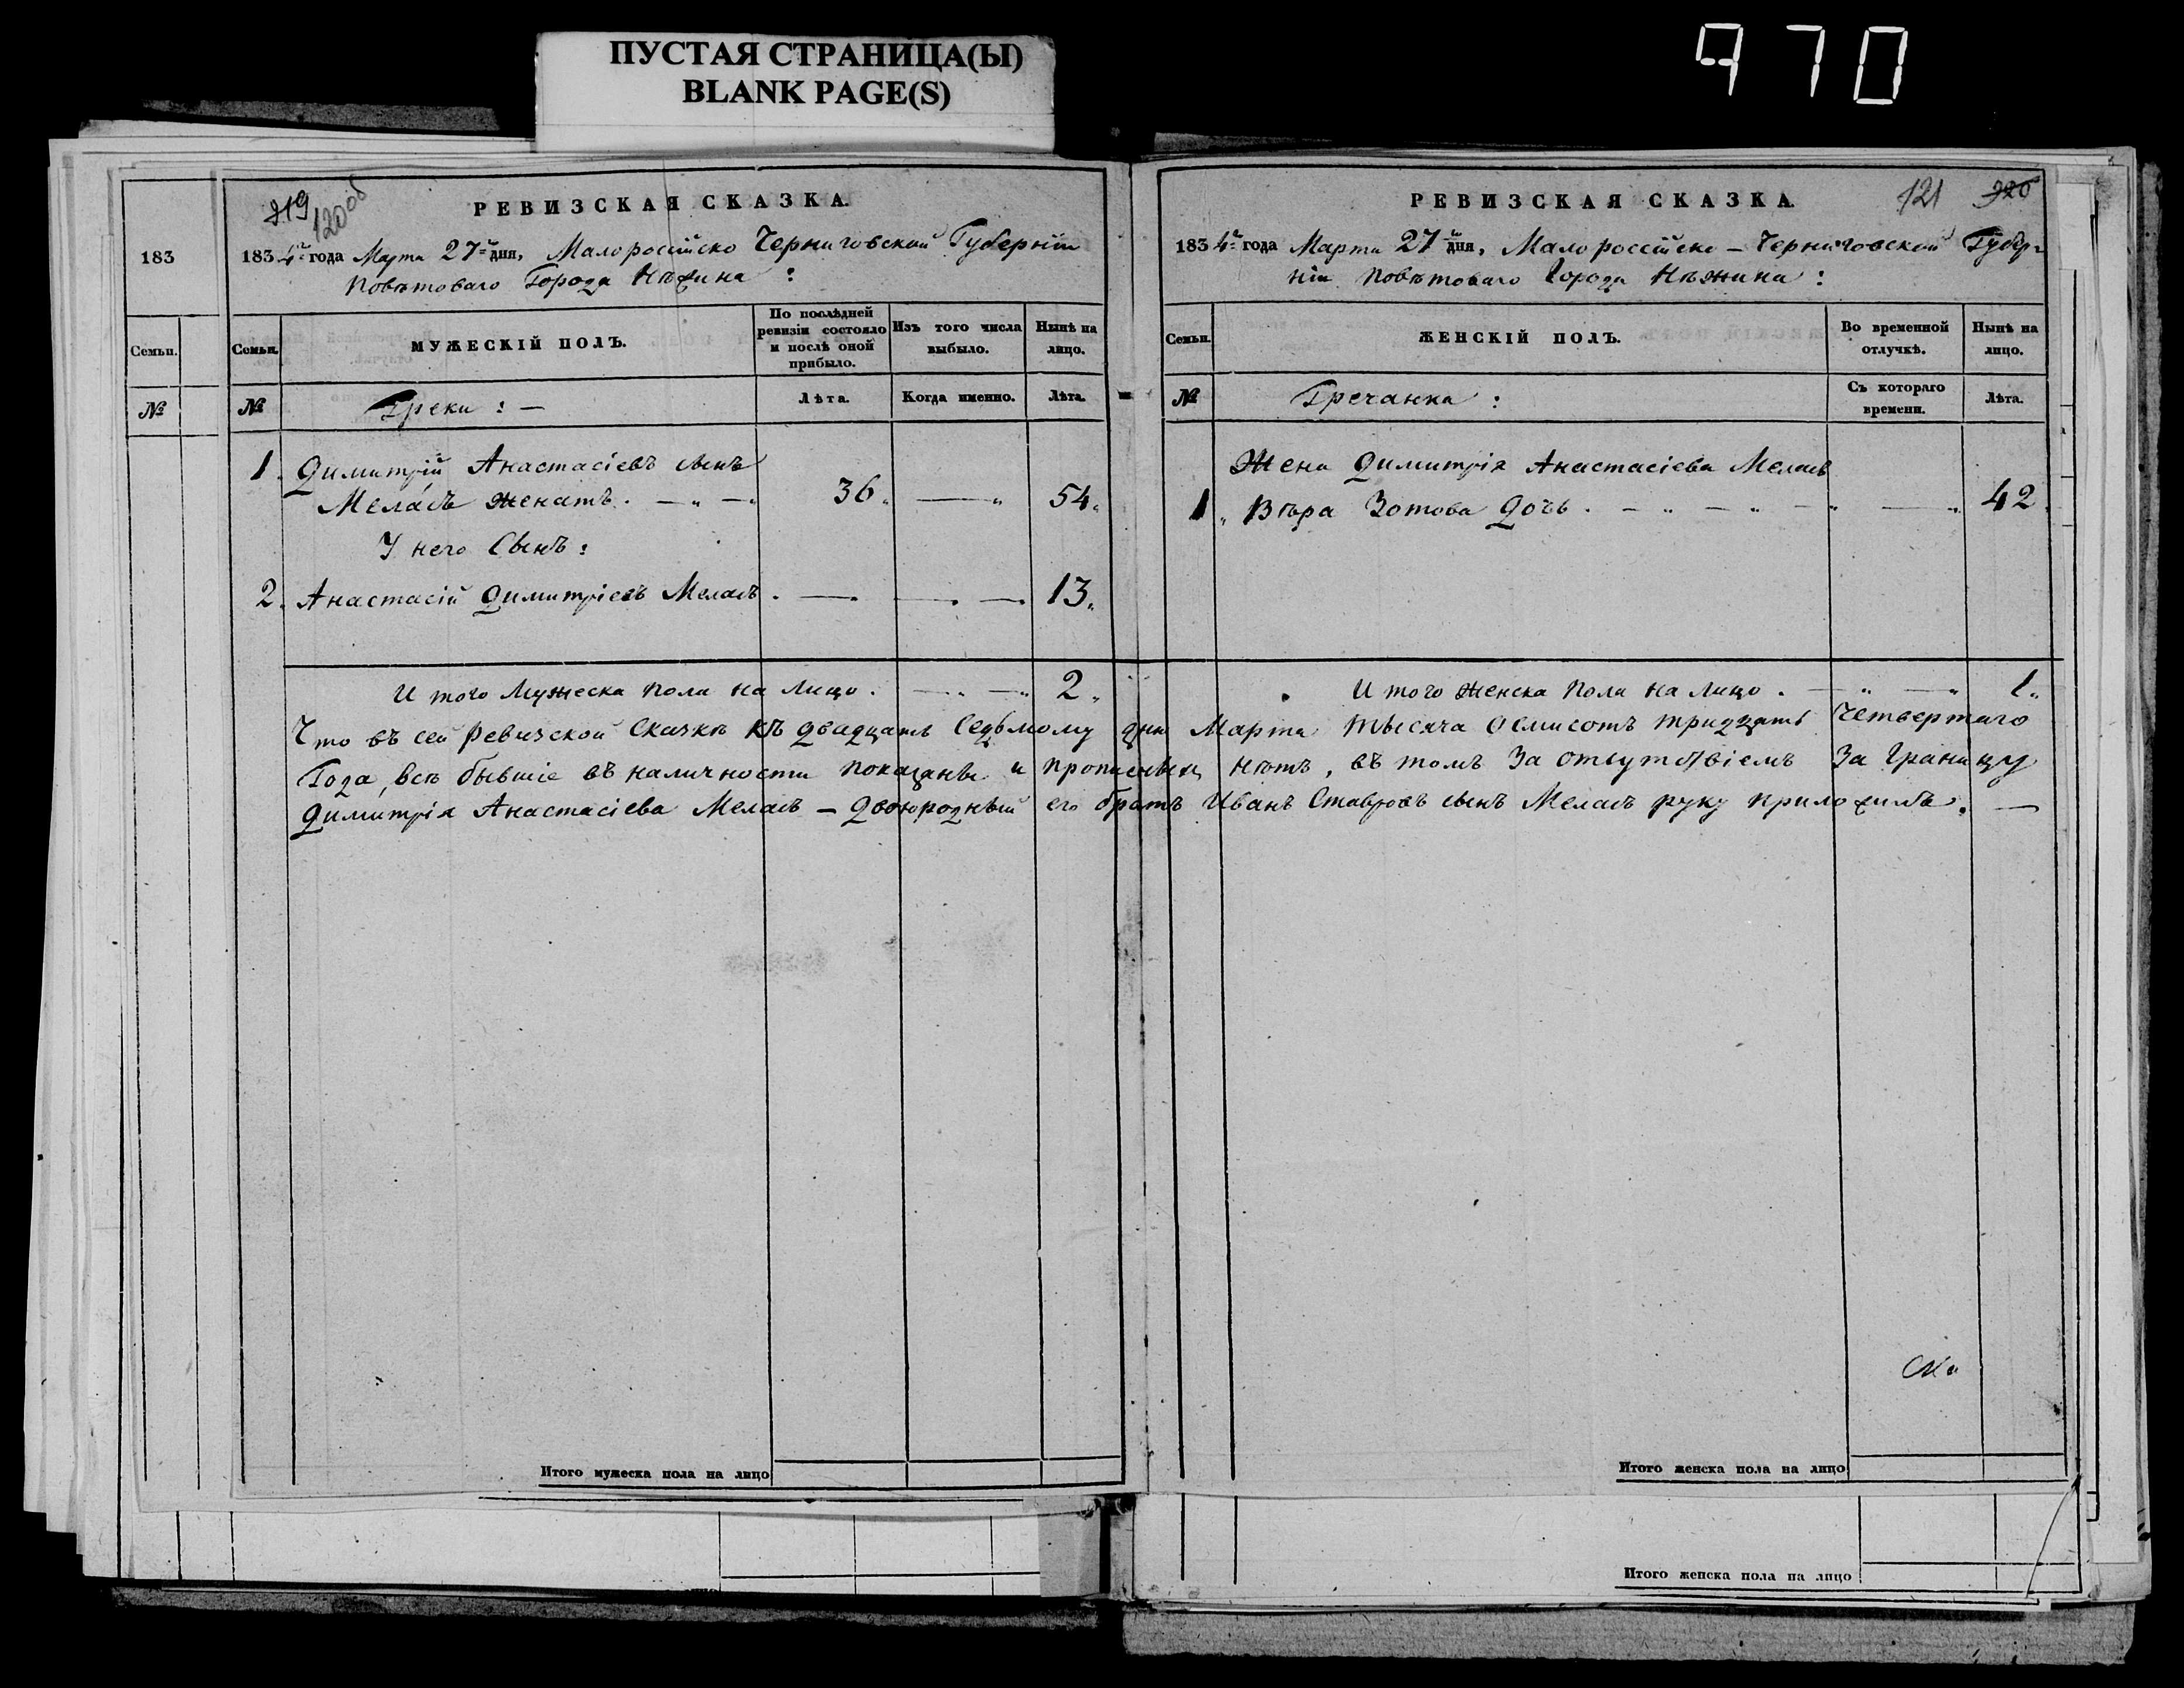 ПУСТАЯ СТРАНИЦА(Ы)
BLANK PAGE(S)
970
183
Семьи.
№
319
120об
РЕВИЗСКАЯ СКАЗКА.
1834го года Марта 27го дня, Малоросійско Черниговской Губерніи
Повѣтоваго Города Нѣжина :
Семьи.
МУЖЕСКІЙ ПОЛЪ.
По послѣдней ревизіи состояло и послѣ оной прибыло.
Изъ того числа выбыло.
Нынѣ на лицо.
№
Греки : —
Лѣта.
Когда именно.
Лѣта.
1. Димитрій Анастасіевъ сынъ
Меласъ женатъ. — „ — 36 „ — „ 54 „
У него Сынъ :
2. Анастасій Димитріевъ Меласъ . — . — . — . 13 „
И того Мужеска пола на лицо . — „ — „ 2 „
РЕВИЗСКАЯ СКАЗКА.
121 320
1834го года Марта 27го дня, Малороссійско – Черниговской Губер-
ніи Повѣтоваго Города Нѣжина :
Семьи.
ЖЕНСКІЙ ПОЛЪ.
Во временной отлучкѣ.
Нынѣ на лицо.
№
Гречанка :
Съ котораго времени.
Лѣта.
Жена Димитрія Анастасіева Меласъ
1 „ Вѣра Зотова Дочь . – „ – „ – „ — „ 42
И того Женска пола на лицо . — „ — „ 1 „
Что въ сей Ревизской Сказкѣ къ двадцать Седьмому дню Марта тысяча Осмисотъ тридцать Четвертаго
Года, всѣ бывшіе въ наличности показаны и прописныхъ нѣтъ, въ томъ За отсутствіемъ За Границу
Димитрія Анастасіева Меласъ – Двоюродный его братъ Иванъ Ставровъ сынъ Меласъ руку приложилъ. —
Итого мужеска пола на лицо
Итого женска пола на лицо
Итого женска пола на лицо